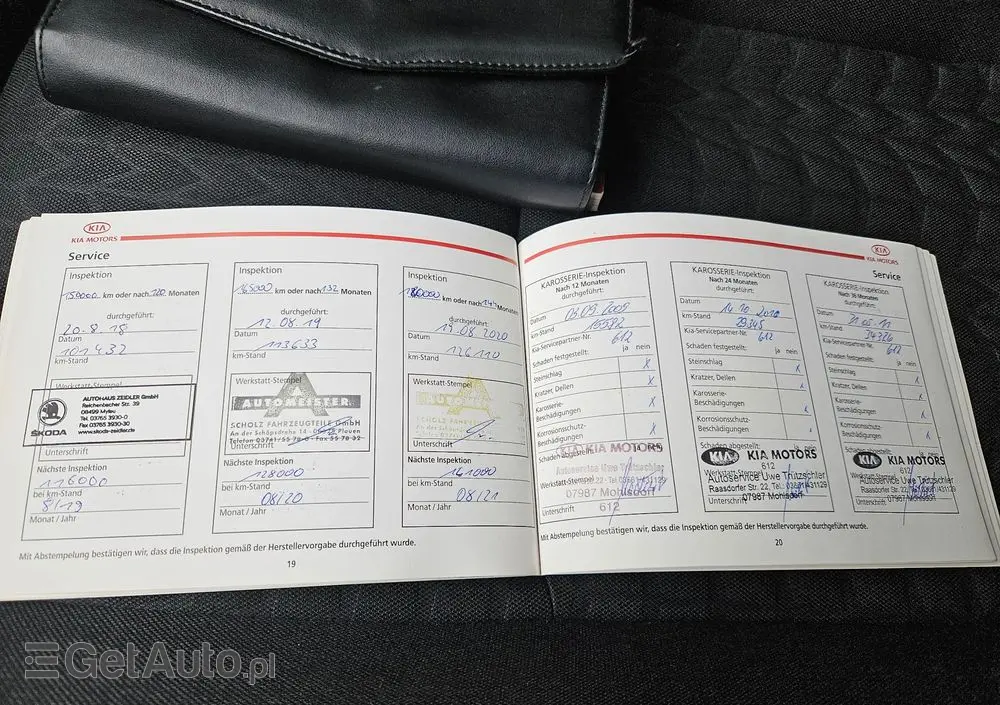 KIA
KIA MOTORS
Service
Inspektion
150000 km oder nach 120 Monaten
durchgeführt:
20.8.18
Datum
101432
km-Stand
Werkstatt-Stempel
AUTOHAUS ZEIDLER GmbH
Reichenbacher Str. 39
08499 Mylau
Tel. 03765 3930-0
Fax 03765 3930-30
www.skoda-zeidler.de
ŠKODA
Unterschrift
Nächste Inspektion
116000
bei km-Stand
8/19
Monat / Jahr
Inspektion
165000 km oder nach 132 Monaten
durchgeführt:
12.08.19
Datum
113633
km-Stand
Werkstatt-Stempel
A
AUTOMEISTER
SCHOLZ FAHRZEUGTEILE GmbH
An der Schöpsdrehe 14 Plauen
Telefon 03741-55 78-0 - Fax 55 78 32
Unterschrift
Nächste Inspektion
128000
bei km-Stand
08/20
Monat / Jahr
Inspektion
km oder nach 144 Monaten
durchgeführt:
19.08.2020
Datum
126110
km-Stand
Werkstatt-Stempel
A
AUTOMEISTER
SCHOLZ FAHRZEUGTEILE GmbH
Unterschrift
Nächste Inspektion
141000
bei km-Stand
08/21
Monat / Jahr
Mit Abstempelung bestätigen wir, dass die Inspektion gemäß der Herstellervorgabe durchgeführt wurde.
19
KIA
KIA MOTORS
Service
KAROSSERIE-Inspektion
Nach 12 Monaten
durchgeführt:
Datum 03.09.2009
km-Stand 15582
Kia-Servicepartner-Nr. 612
Schaden festgestellt: ja nein
Steinschlag X
Kratzer, Dellen X
Karosserie-
Beschädigungen X
Korrosionsschutz-
Beschädigungen X
Schaden abgestellt: ja nein
KIA MOTORS
Autoservice Uwe Trützschler
Werkstatt-Stempel
07987 Mohlsdorf
Unterschrift 612
KAROSSERIE-Inspektion
Nach 24 Monaten
durchgeführt:
Datum 14.10.2010
km-Stand 29345
Kia-Servicepartner-Nr. 612
Schaden festgestellt: ja nein
Steinschlag X
Kratzer, Dellen X
Karosserie-
Beschädigungen X
Korrosionsschutz-
Beschädigungen X
Schaden abgestellt: ja nein
KIA KIA MOTORS
612
Werkstatt-Stempel
Autoservice Uwe Trützschler
Raasdorfer Str. 22, Tel.: 03661/431129
07987 Mohlsdorf
Unterschrift
KAROSSERIE-Inspektion
Nach 36 Monaten
durchgeführt:
Datum
km-Stand 34326
Kia-Servicepartner-Nr. 612
Schaden festgestellt: ja nein
Steinschlag X
Kratzer, Dellen X
Karosserie-
Beschädigungen X
Korrosionsschutz-
Beschädigungen X
Schaden abgestellt: ja nein
KIA KIA MOTORS
612
Werkstatt-Stempel
Autoservice Uwe Trützschler
Raasdorfer Str. 22, Tel.: 03661/431129
07987 Mohlsdorf
Unterschrift
Mit Abstempelung bestätigen wir, dass die Inspektion gemäß der Herstellervorgabe durchgeführt wurde.
20
GetAuto.pl